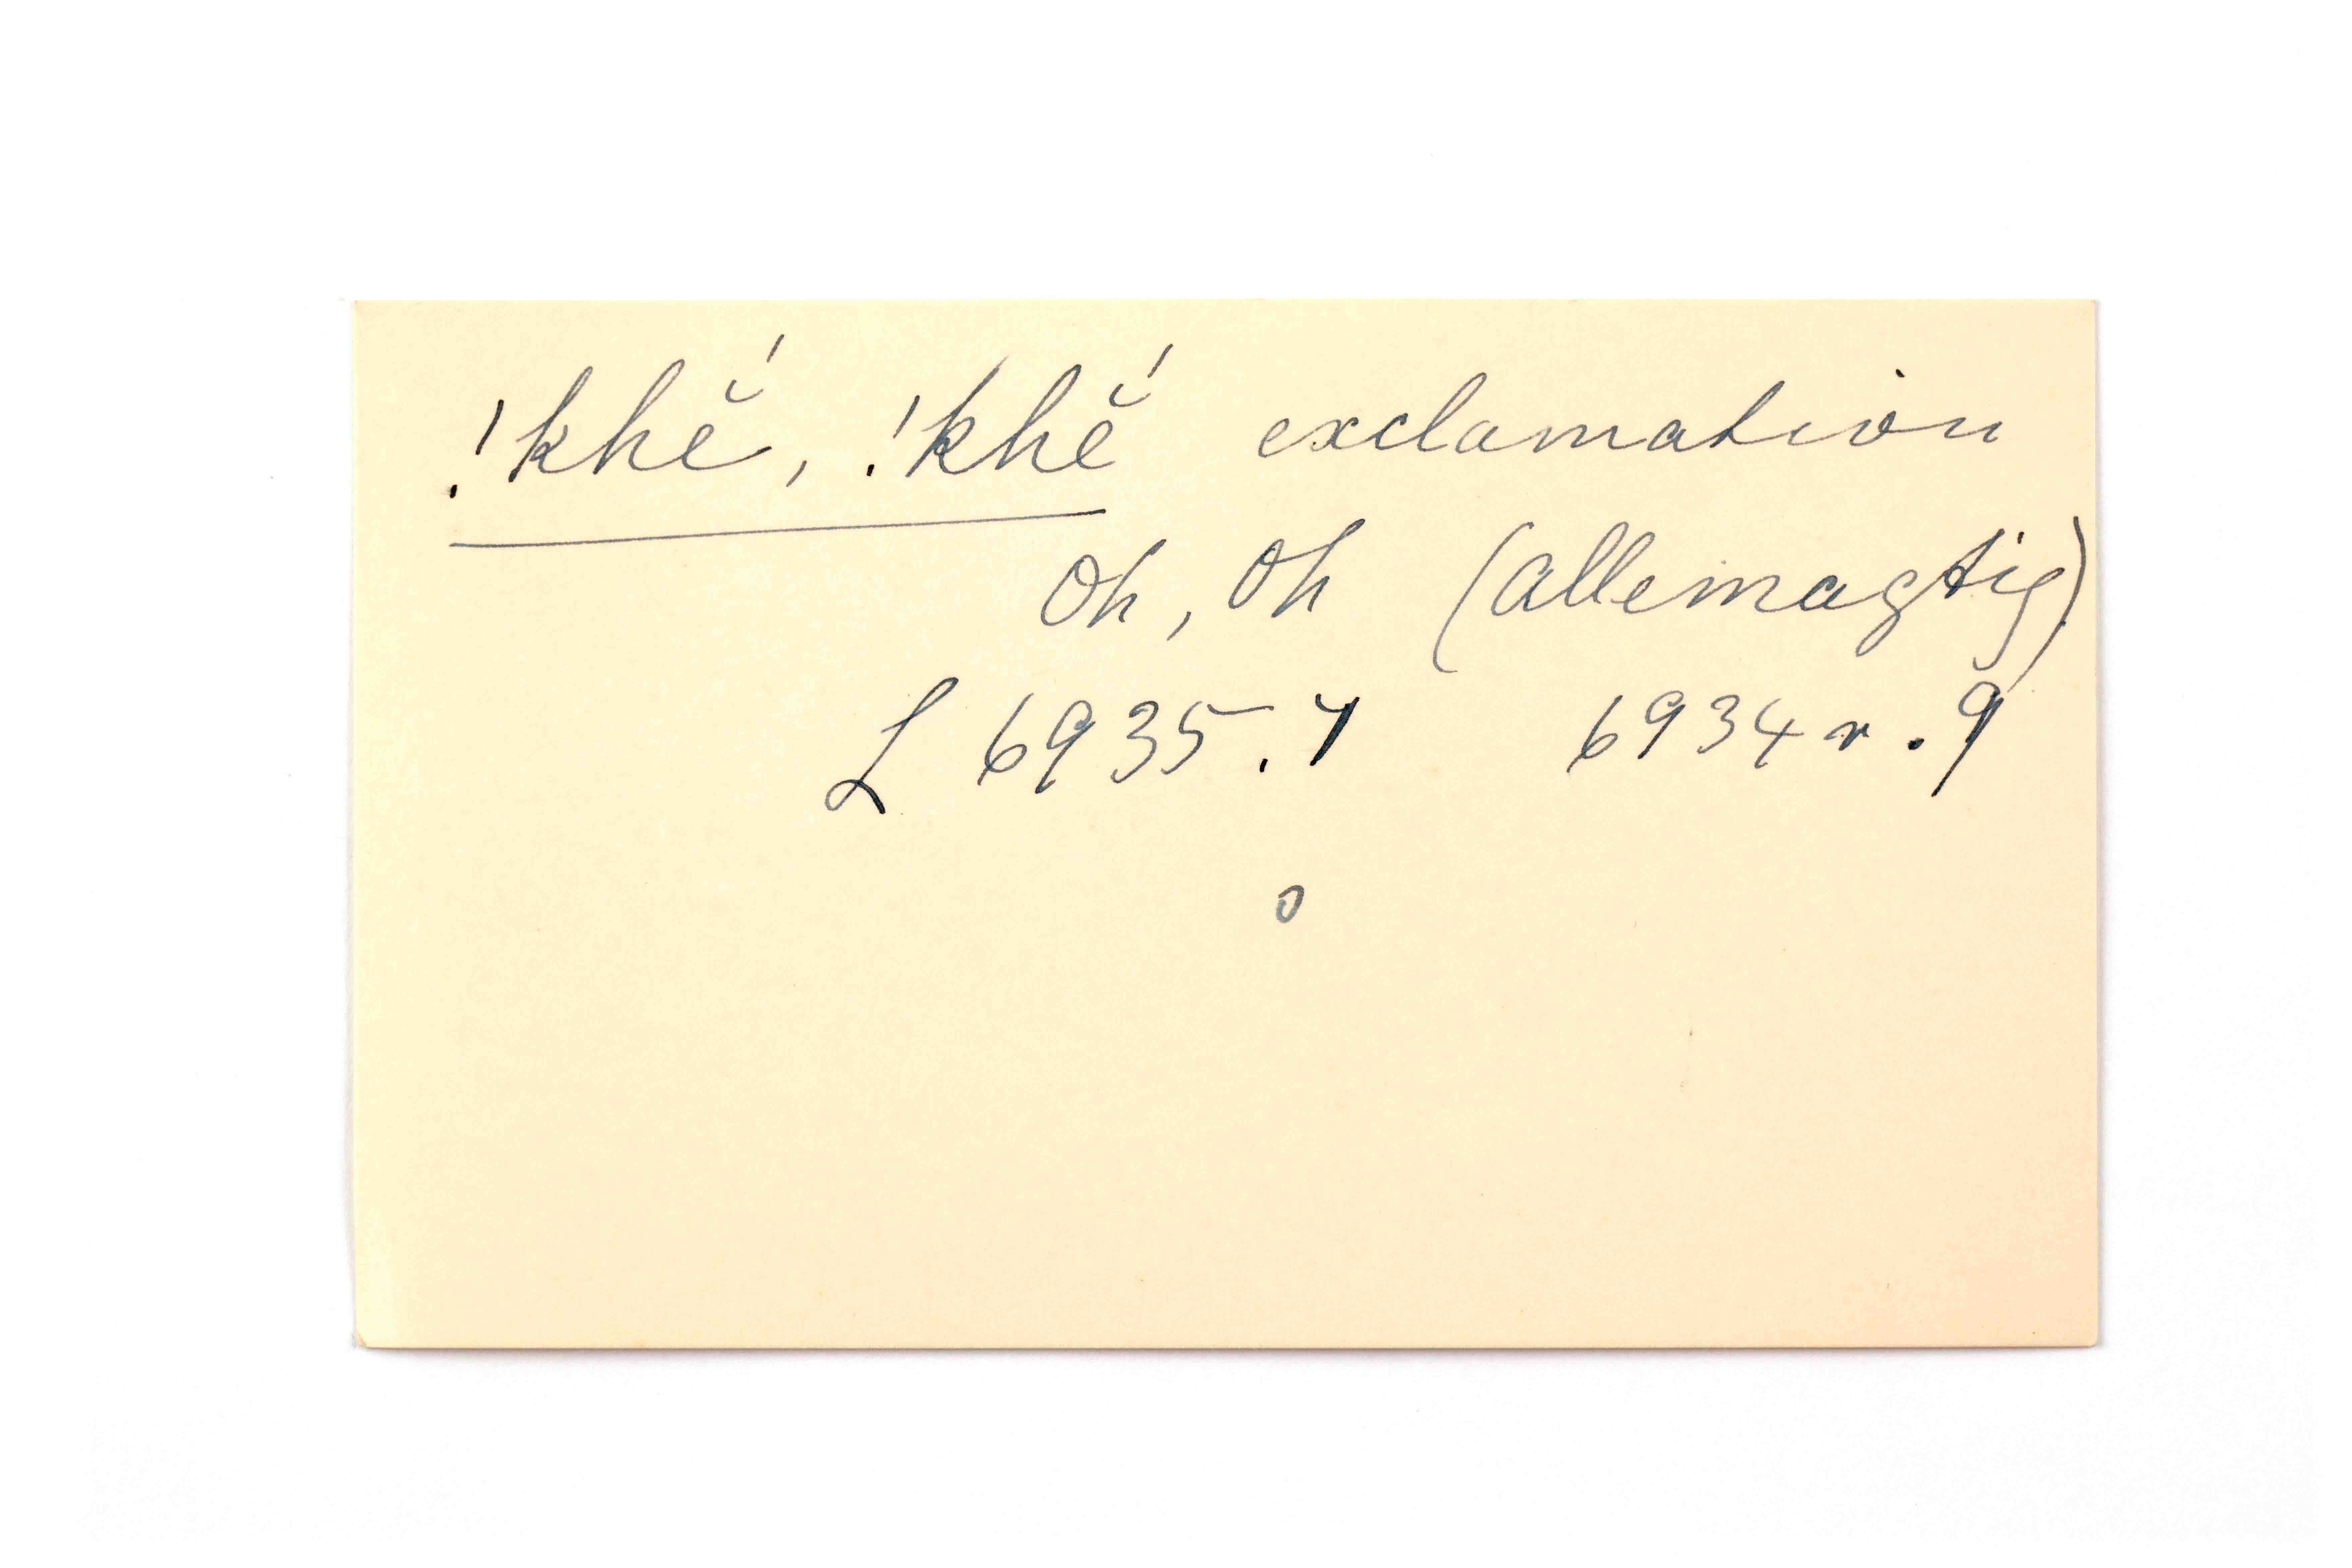 !khĕ́, !khĕ́ exclamation
Oh, Oh (allemagtig)
L 6935.7 6934 r. 9
o